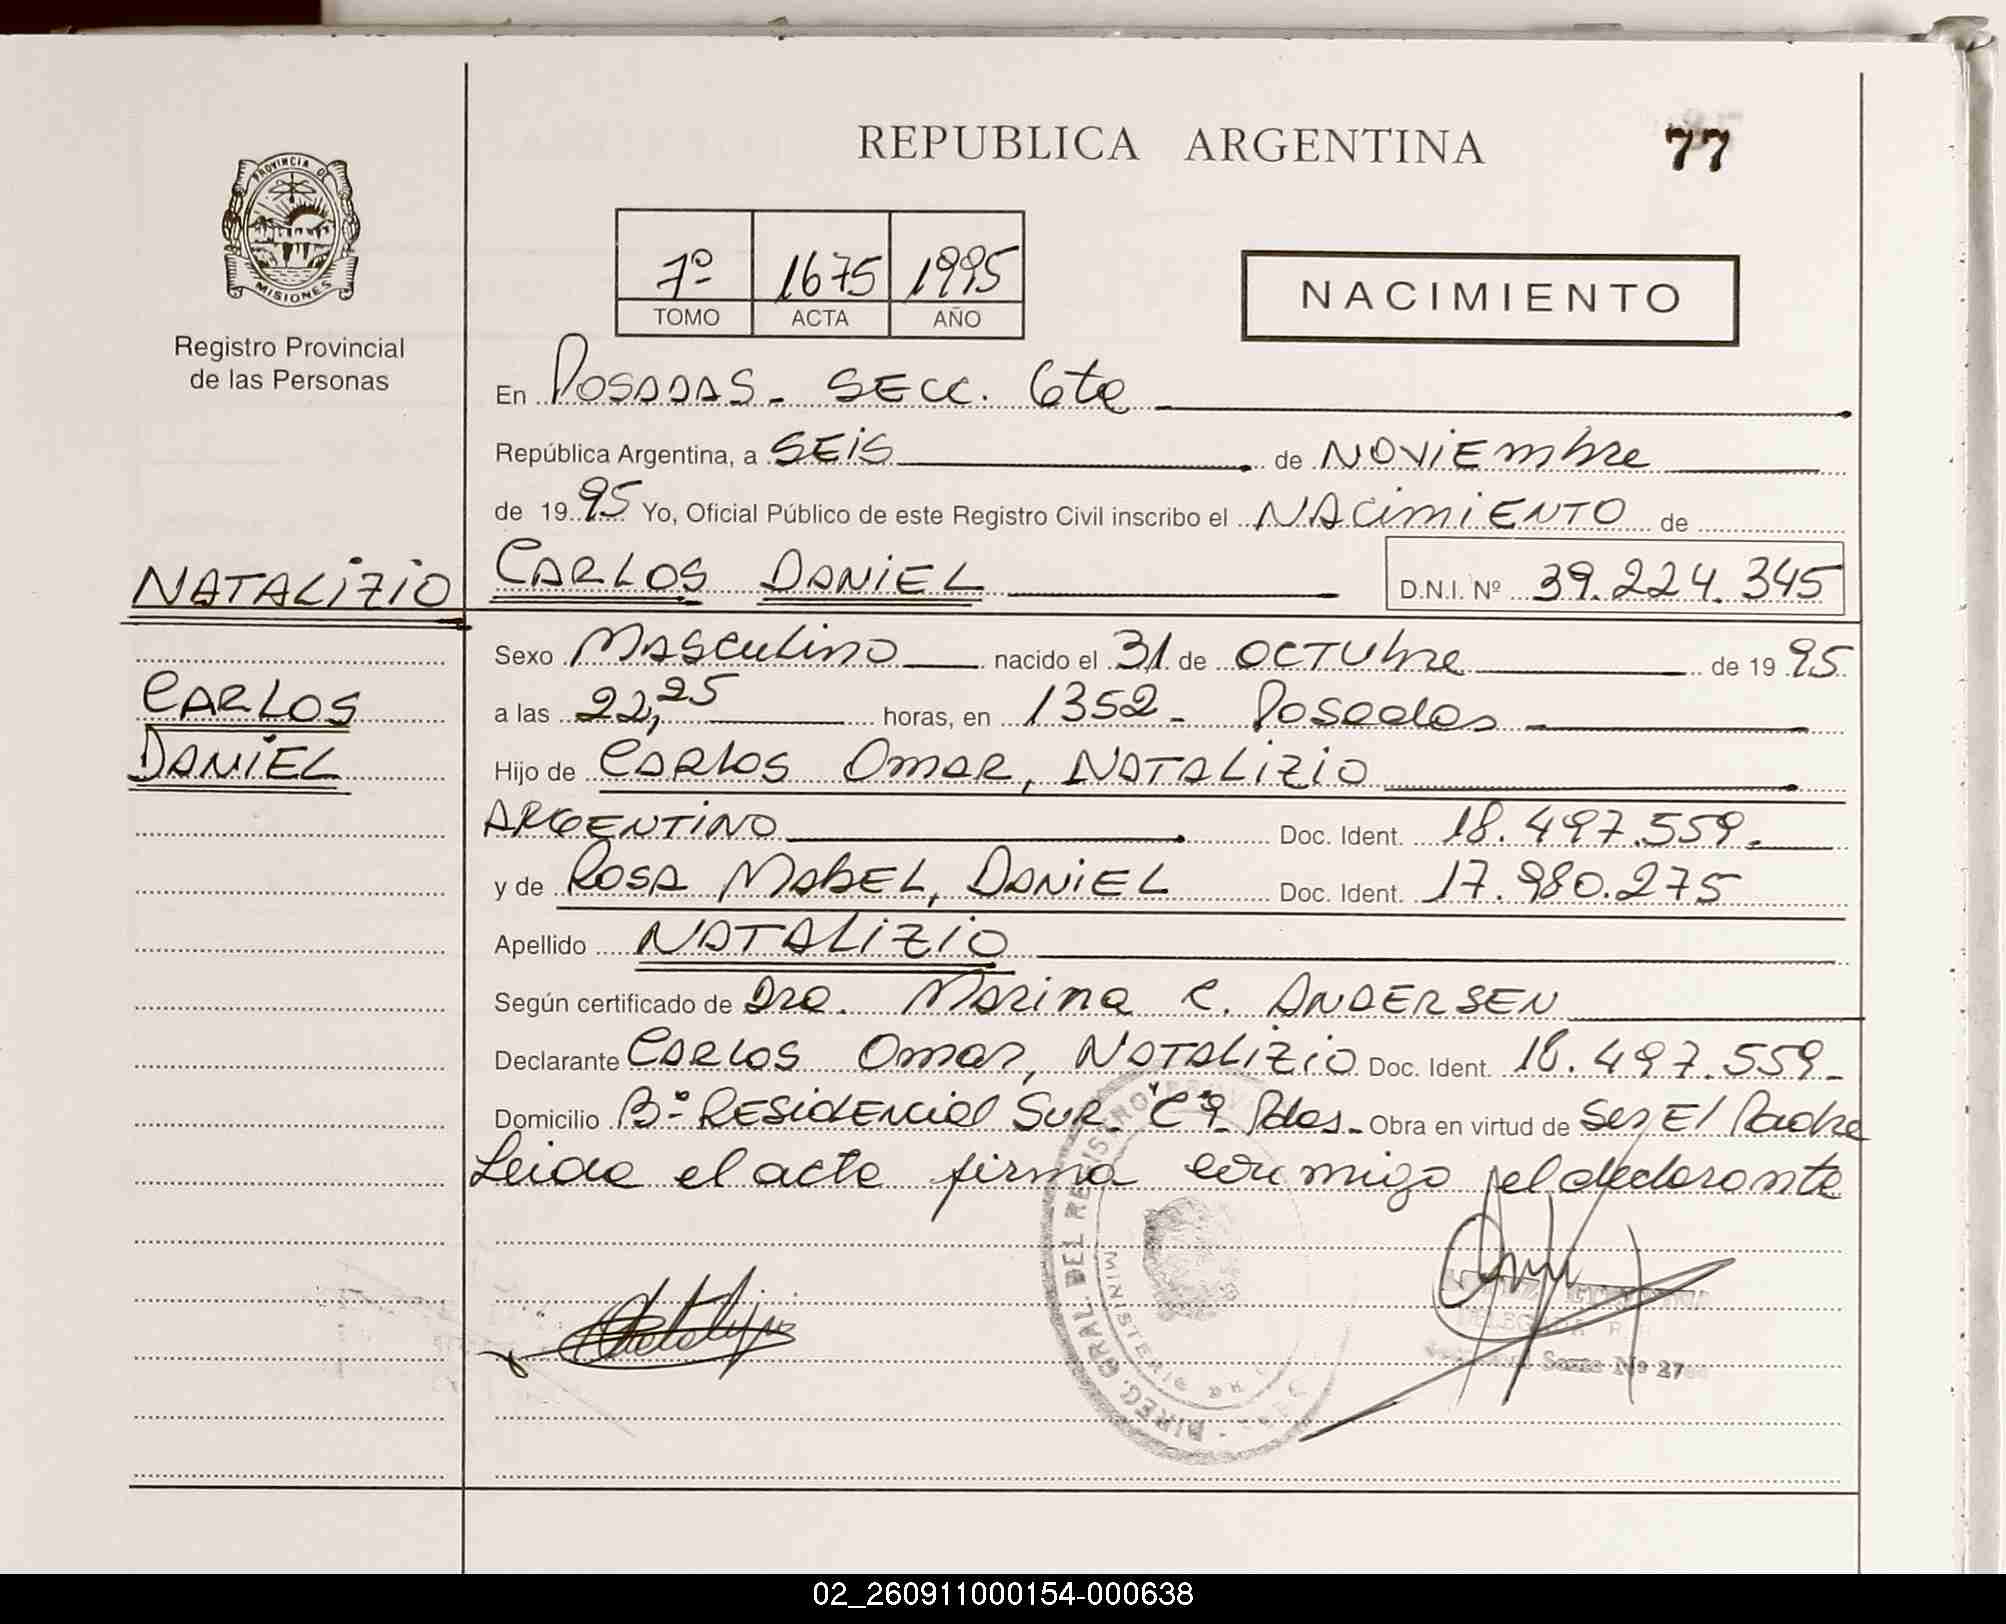 REPUBLICA ARGENTINA
77
PROVINCIA DE
MISIONES
Registro Provincial
de las Personas
7º 1675 1995
TOMO ACTA AÑO
NACIMIENTO
En POSADAS - SECC. 6ta
República Argentina, a SEIS de NOVIEmbre
de 1995 Yo, Oficial Público de este Registro Civil inscribo el NACimiENTO de
NATALIZIO
CARLOS DANIEL D.N.I. Nº 39.224.345
Sexo Masculino nacido el 31 de OCTUbre de 1995
CARLOS
a las 22,25 horas, en 1352 - Posadas
DANIEL
Hijo de CARLOS OMAR, NATALIZIO
ARGENTINO Doc. Ident. 18.497.559.
y de ROSA MABEL, DANIEL Doc. Ident. 17.980.275
Apellido NATALIZIO
Según certificado de Dra. Marina C. ANDERSEN
Declarante CARLOS Omar, NATALIZIO Doc. Ident. 18.497.559-
Domicilio Bº RESIDENCIAL SUR "C" Pdas - Obra en virtud de Ser El Padre
Leida el acta firma conmigo el declarante
DIREC. GRAL. DEL REGISTRO
MINISTERIO DE
DELEGADA
Sexta Nº 27
02_260911000154-000638